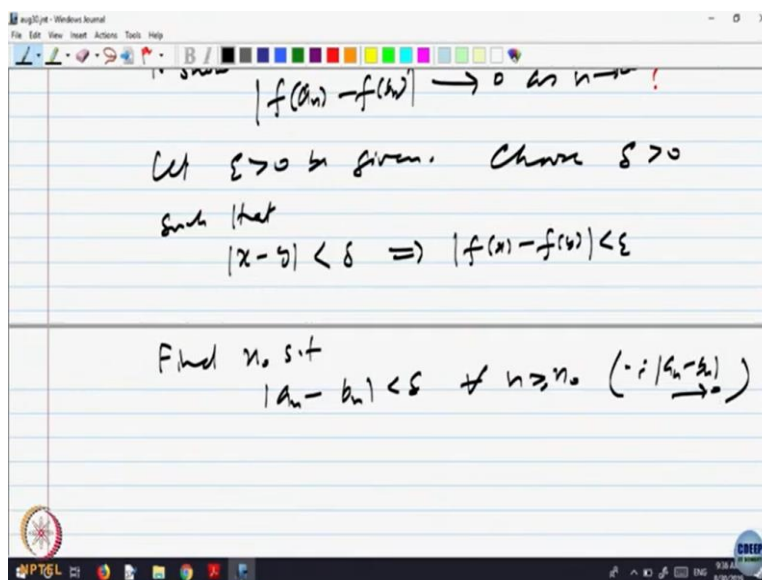 aug30.jnt - Windows Journal
File Edit View Insert Actions Tools Help
B I
To show
|f(a_n) - f(b_n)| → 0 as n → !
Let ε > 0 be given. Choose δ > 0
such that
|x - y| < δ ⇒ |f(x) - f(y)| < ε
Find n₀ s.t
|a_n - b_n| < δ ∀ n ≥ n₀ (∵ |a_n - b_n| → 0)
NPTEL
CDEEP
ENG
9:36 AM